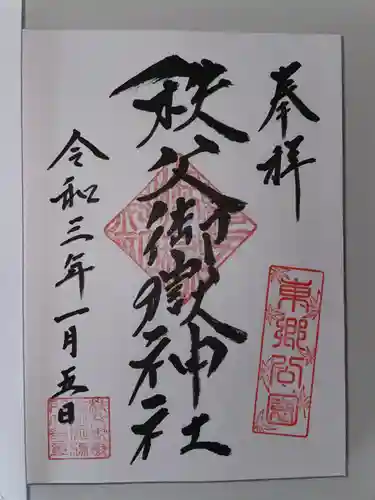 奉祥
東郷公園
秩父御嶽神社
令和三年一月五日